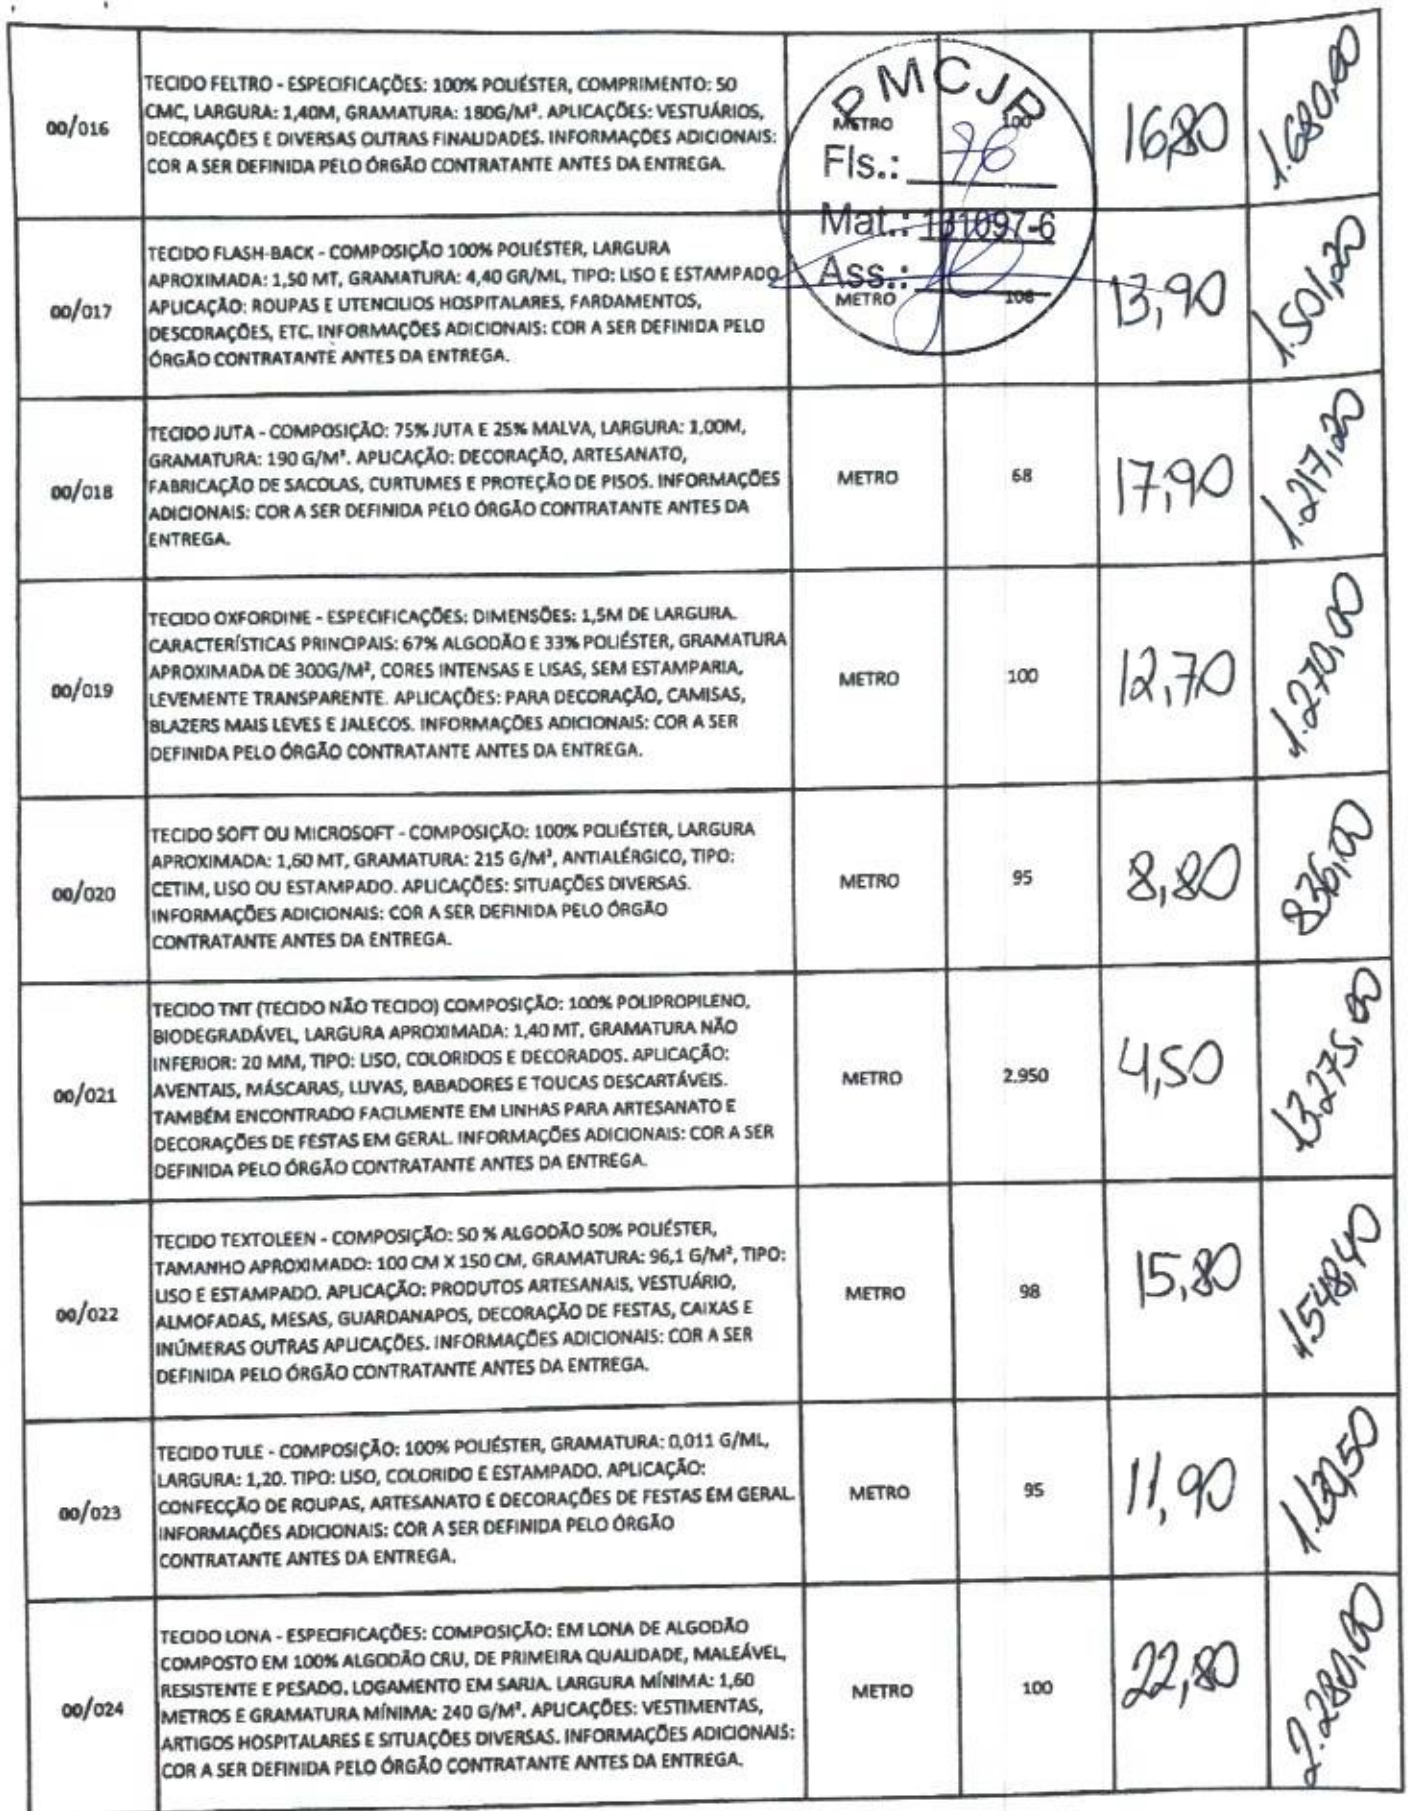 00/016
TECIDO FELTRO - ESPECIFICAÇÕES: 100% POLIÉSTER, COMPRIMENTO: 50
CMC, LARGURA: 1,40M, GRAMATURA: 180G/M². APLICAÇÕES: VESTUÁRIOS,
DECORAÇÕES E DIVERSAS OUTRAS FINALIDADES. INFORMAÇÕES ADICIONAIS:
COR A SER DEFINIDA PELO ÓRGÃO CONTRATANTE ANTES DA ENTREGA.
METRO
100
16,80
1.680,00
PMCJP
Fls.: 76
Mat.: 131097-6
Ass.:
00/017
TECIDO FLASH-BACK - COMPOSIÇÃO 100% POLIÉSTER, LARGURA
APROXIMADA: 1,50 MT, GRAMATURA: 4,40 GR/ML, TIPO: LISO E ESTAMPADO
APLICAÇÃO: ROUPAS E UTENCILIOS HOSPITALARES, FARDAMENTOS,
DESCORAÇÕES, ETC. INFORMAÇÕES ADICIONAIS: COR A SER DEFINIDA PELO
ÓRGÃO CONTRATANTE ANTES DA ENTREGA.
METRO
108
13,90
1.501,20
00/018
TECIDO JUTA - COMPOSIÇÃO: 75% JUTA E 25% MALVA, LARGURA: 1,00M,
GRAMATURA: 190 G/M². APLICAÇÃO: DECORAÇÃO, ARTESANATO,
FABRICAÇÃO DE SACOLAS, CURTUMES E PROTEÇÃO DE PISOS. INFORMAÇÕES
ADICIONAIS: COR A SER DEFINIDA PELO ÓRGÃO CONTRATANTE ANTES DA
ENTREGA.
METRO
68
17,90
1.217,20
00/019
TECIDO OXFORDINE - ESPECIFICAÇÕES: DIMENSÕES: 1,5M DE LARGURA.
CARACTERÍSTICAS PRINCIPAIS: 67% ALGODÃO E 33% POLIÉSTER, GRAMATURA
APROXIMADA DE 300G/M², CORES INTENSAS E LISAS, SEM ESTAMPARIA,
LEVEMENTE TRANSPARENTE. APLICAÇÕES: PARA DECORAÇÃO, CAMISAS,
BLAZERS MAIS LEVES E JALECOS. INFORMAÇÕES ADICIONAIS: COR A SER
DEFINIDA PELO ÓRGÃO CONTRATANTE ANTES DA ENTREGA.
METRO
100
12,70
1.270,00
00/020
TECIDO SOFT OU MICROSOFT - COMPOSIÇÃO: 100% POLIÉSTER, LARGURA
APROXIMADA: 1,60 MT, GRAMATURA: 215 G/M², ANTIALÉRGICO, TIPO:
CETIM, LISO OU ESTAMPADO. APLICAÇÕES: SITUAÇÕES DIVERSAS.
INFORMAÇÕES ADICIONAIS: COR A SER DEFINIDA PELO ÓRGÃO
CONTRATANTE ANTES DA ENTREGA.
METRO
95
8,80
836,00
00/021
TECIDO TNT (TECIDO NÃO TECIDO) COMPOSIÇÃO: 100% POLIPROPILENO,
BIODEGRADÁVEL, LARGURA APROXIMADA: 1,40 MT, GRAMATURA NÃO
INFERIOR: 20 MM, TIPO: LISO, COLORIDOS E DECORADOS. APLICAÇÃO:
AVENTAIS, MÁSCARAS, LUVAS, BABADORES E TOUCAS DESCARTÁVEIS.
TAMBÉM ENCONTRADO FACILMENTE EM LINHAS PARA ARTESANATO E
DECORAÇÕES DE FESTAS EM GERAL. INFORMAÇÕES ADICIONAIS: COR A SER
DEFINIDA PELO ÓRGÃO CONTRATANTE ANTES DA ENTREGA.
METRO
2.950
4,50
13.275,00
00/022
TECIDO TEXTOLEEN - COMPOSIÇÃO: 50 % ALGODÃO 50% POLIÉSTER,
TAMANHO APROXIMADO: 100 CM X 150 CM, GRAMATURA: 96,1 G/M², TIPO:
LISO E ESTAMPADO. APLICAÇÃO: PRODUTOS ARTESANAIS, VESTUÁRIO,
ALMOFADAS, MESAS, GUARDANAPOS, DECORAÇÃO DE FESTAS, CAIXAS E
INÚMERAS OUTRAS APLICAÇÕES. INFORMAÇÕES ADICIONAIS: COR A SER
DEFINIDA PELO ÓRGÃO CONTRATANTE ANTES DA ENTREGA.
METRO
98
15,80
1.548,40
00/023
TECIDO TULE - COMPOSIÇÃO: 100% POLIÉSTER, GRAMATURA: 0,011 G/ML,
LARGURA: 1,20. TIPO: LISO, COLORIDO E ESTAMPADO. APLICAÇÃO:
CONFECÇÃO DE ROUPAS, ARTESANATO E DECORAÇÕES DE FESTAS EM GERAL.
INFORMAÇÕES ADICIONAIS: COR A SER DEFINIDA PELO ÓRGÃO
CONTRATANTE ANTES DA ENTREGA.
METRO
95
11,90
1.130,50
00/024
TECIDO LONA - ESPECIFICAÇÕES: COMPOSIÇÃO: EM LONA DE ALGODÃO
COMPOSTO EM 100% ALGODÃO CRU, DE PRIMEIRA QUALIDADE, MALEÁVEL,
RESISTENTE E PESADO. LOGAMENTO EM SARJA. LARGURA MÍNIMA: 1,60
METROS E GRAMATURA MÍNIMA: 240 G/M². APLICAÇÕES: VESTIMENTAS,
ARTIGOS HOSPITALARES E SITUAÇÕES DIVERSAS. INFORMAÇÕES ADICIONAIS:
COR A SER DEFINIDA PELO ÓRGÃO CONTRATANTE ANTES DA ENTREGA.
METRO
100
22,80
2.280,00